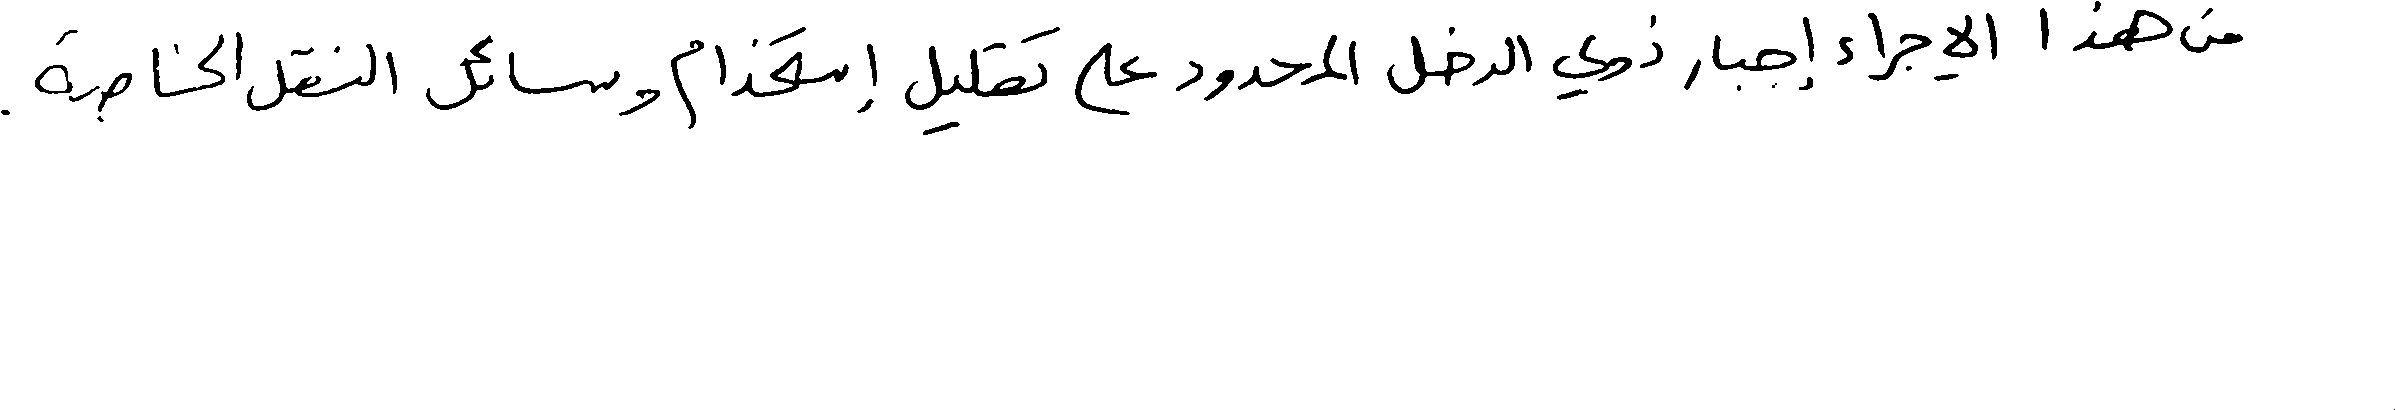 من هذا الإجراء إجبار ذوي الدخل المحدود على تقليل إستخذام وسائل النقل الخاصة .